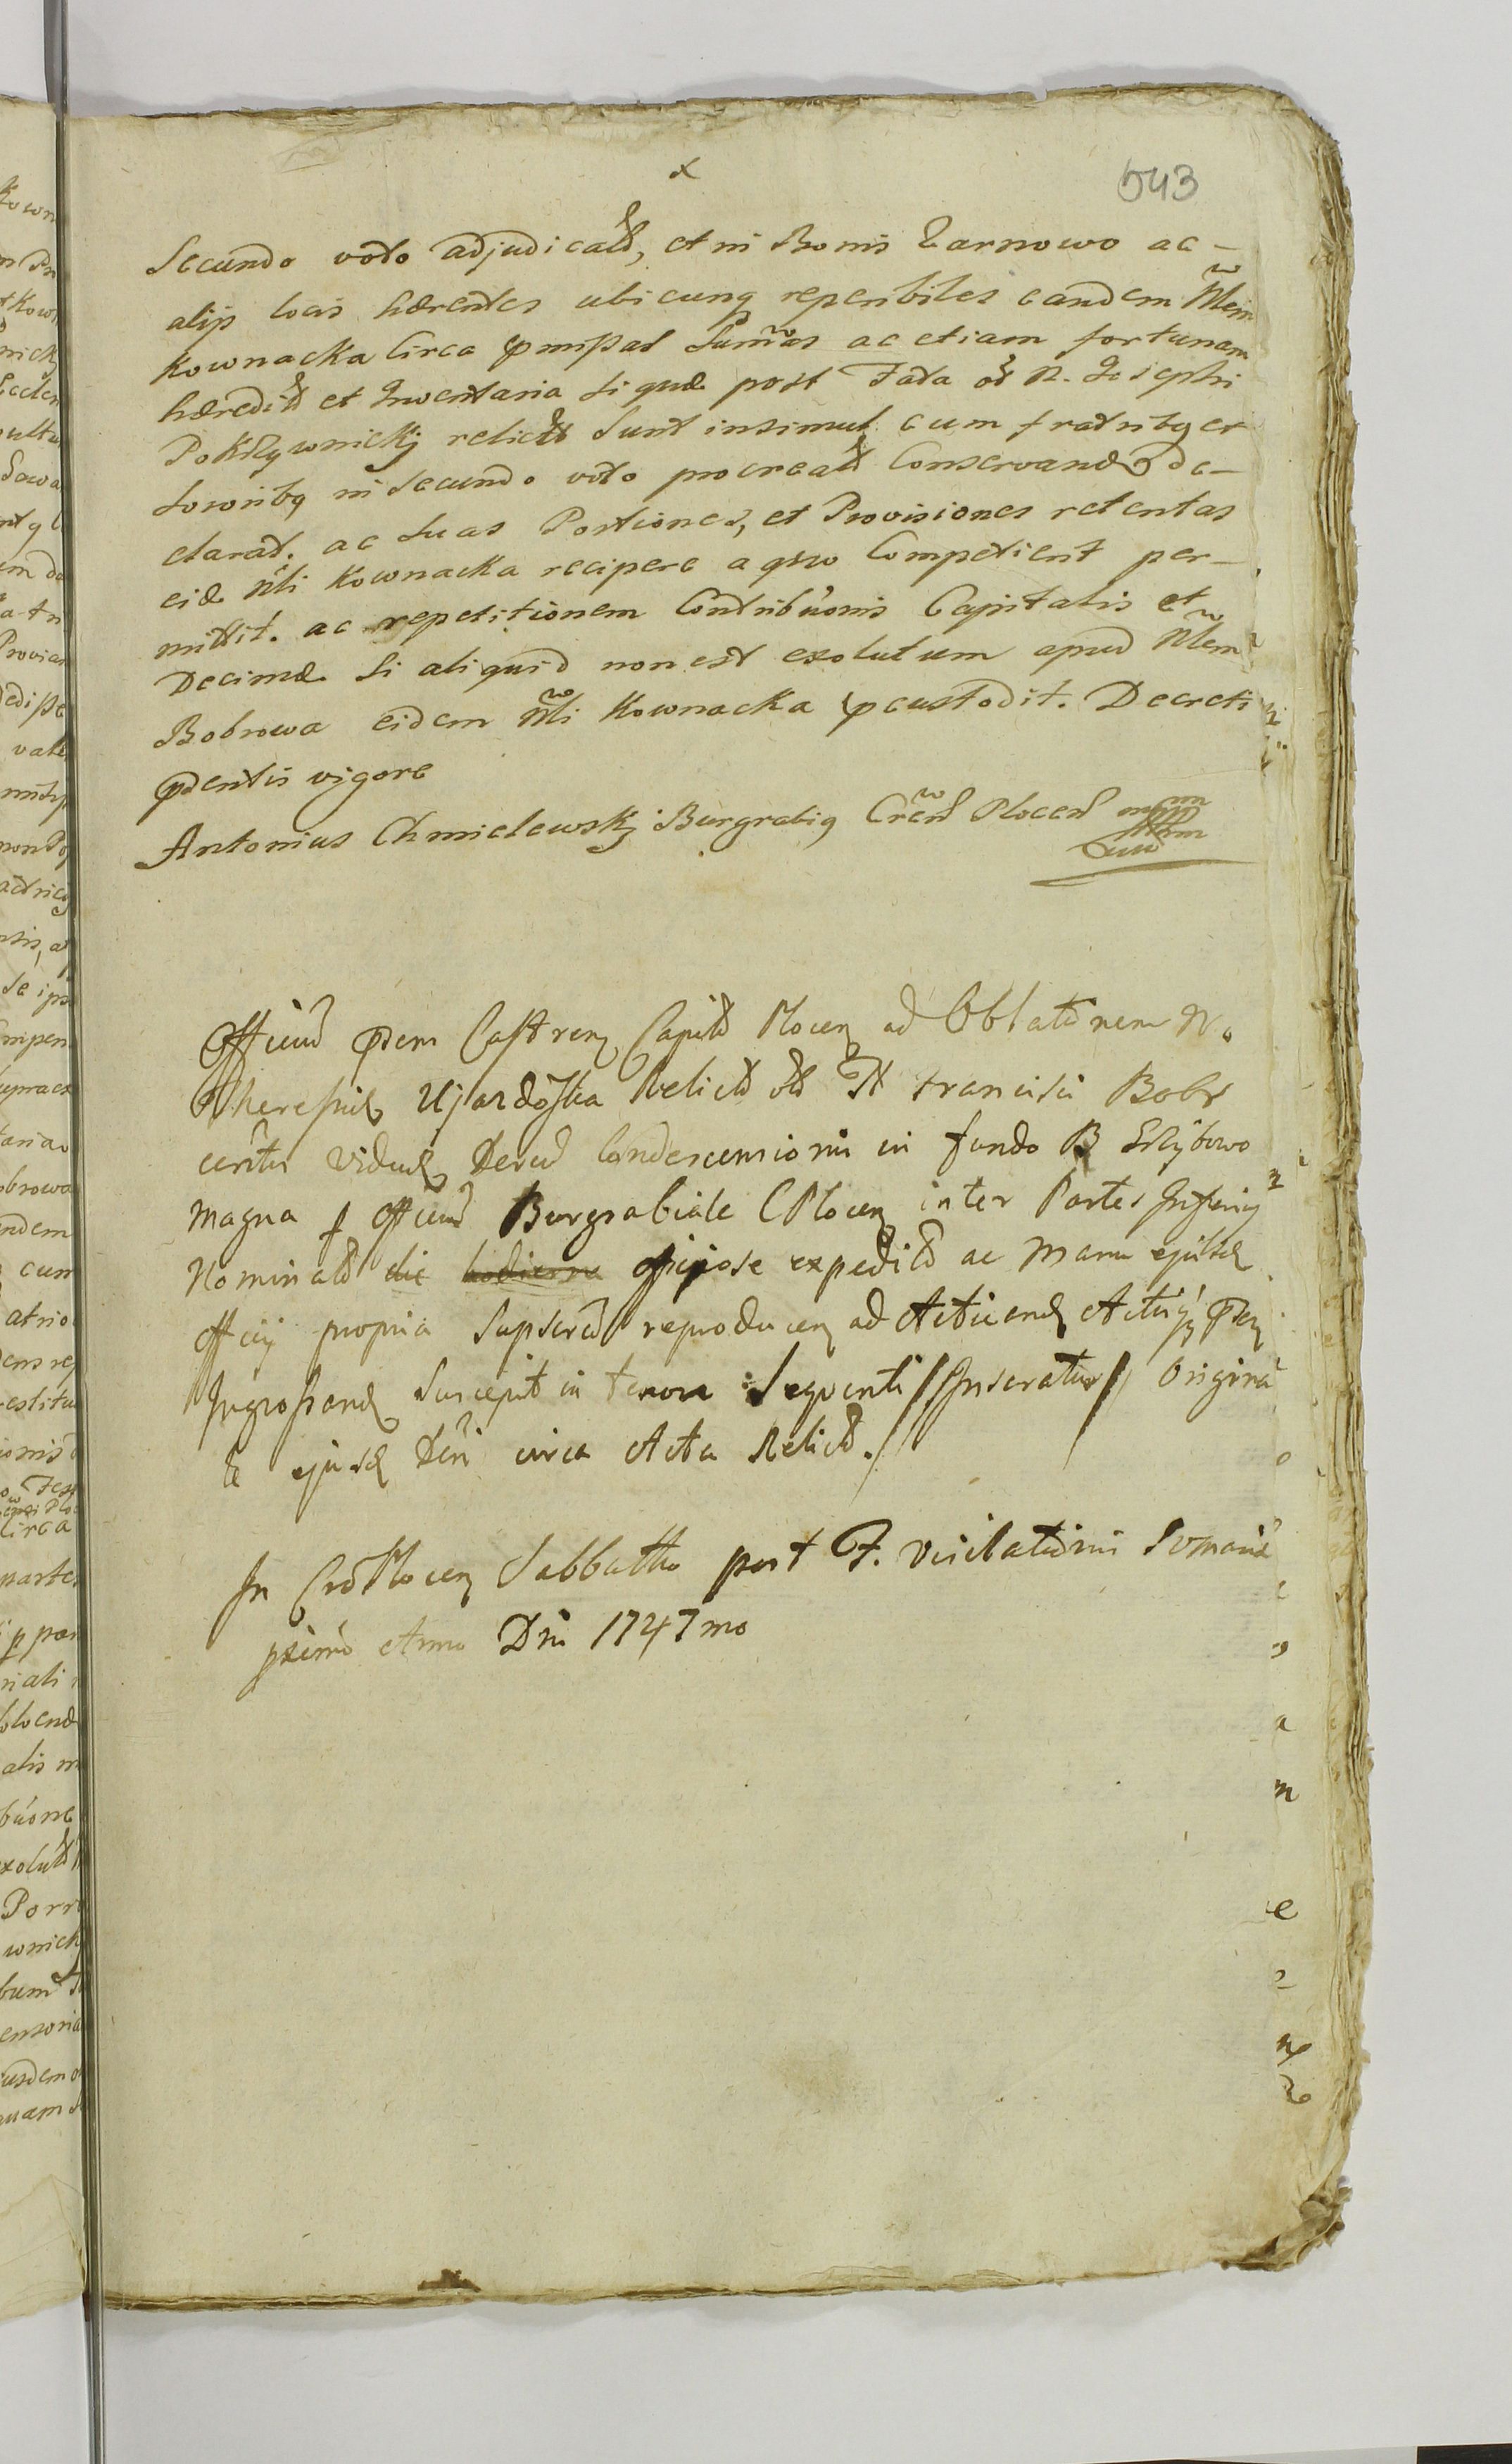 x
543
Secundo voto adjudicatt, et in Bonis Tarnowo ac-
alijs locis hærentes ubicunq reperibiles eandem Nlem
Kownacka Circa pmissas Sumas ac etiam fortunam
hæredit et Inventaria si quæ post Fata ol N. Josephi
Pokrzywnickij relictt sunt insimul cum fratribq et
Sororibq in secundo voto procreatt Conservand de-
clarat. ac suas Portiones, et Provisiones retentas
eid Nli Kownacka recipere a quo Competient per-
mittit. ac repetitionem Contribuonis Capitalis et
Decimæ si aliquid non est exolutum apud Nlem
Bobrowa eidem Nli Kownacka pcustodit. Decreti
pdentis vigore
Antonius Chmielewskj Burgrabiq Crens Plocens mpp
Officiu pdens Castrens Capit Plocens ad Oblatonem N.
Theressiæ Ujazdoska Relictt olt N Francisci Bobr
centis Viduæ Decret Condescensionis in fundo B Srzybowo
Magna p Officiu Burgrabiale C Plocens inter Partes Inferiq
Nominatt die hodierna officiose expeditt ac Manu ejusd
Officij propria Subscrit reproducens ad Acticand Actisq pdens
Ingrossand Suscepit in tenore Sequenti // Inseratur // Origina
le ejusd Decri circa Acta Relict. //
In Cro Plocens Sabbatho post F. Visitationis B V Mariæ
pximo Anno Dni 1747mo